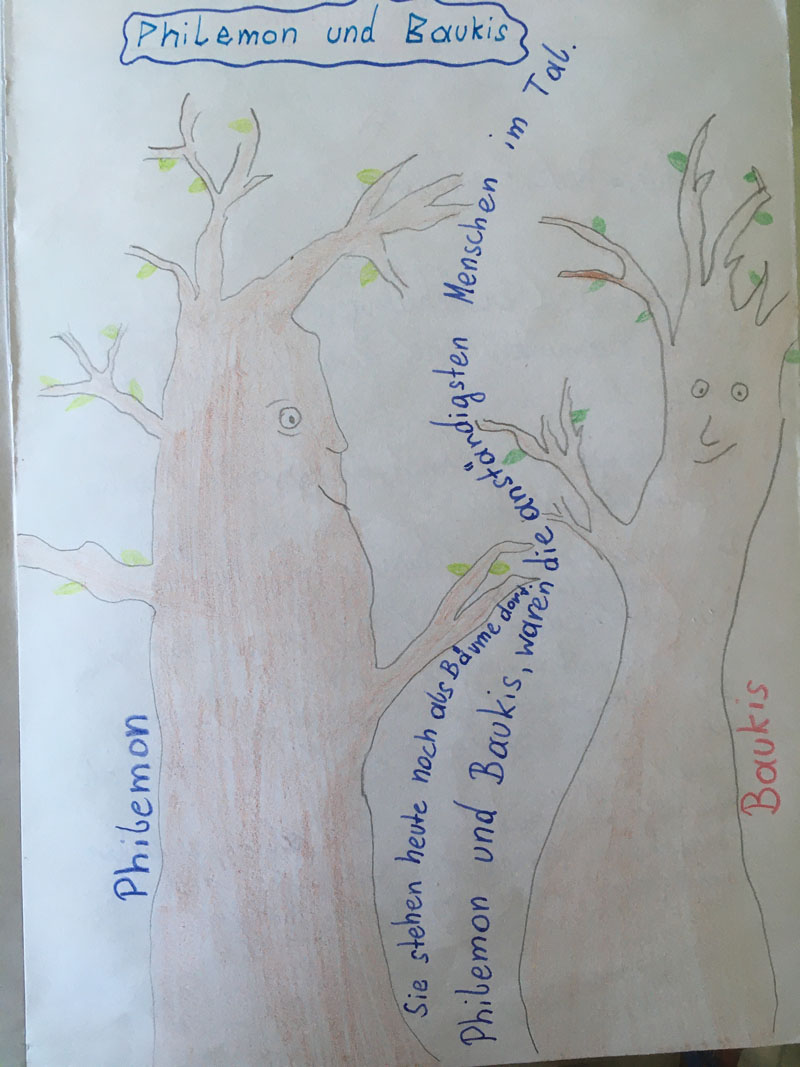 Philemon und Baukis
Philemon
Sie stehen heute noch als Bäume dort.
Philemon und Baukis, waren die anständigsten Menschen im Tal.
Baukis